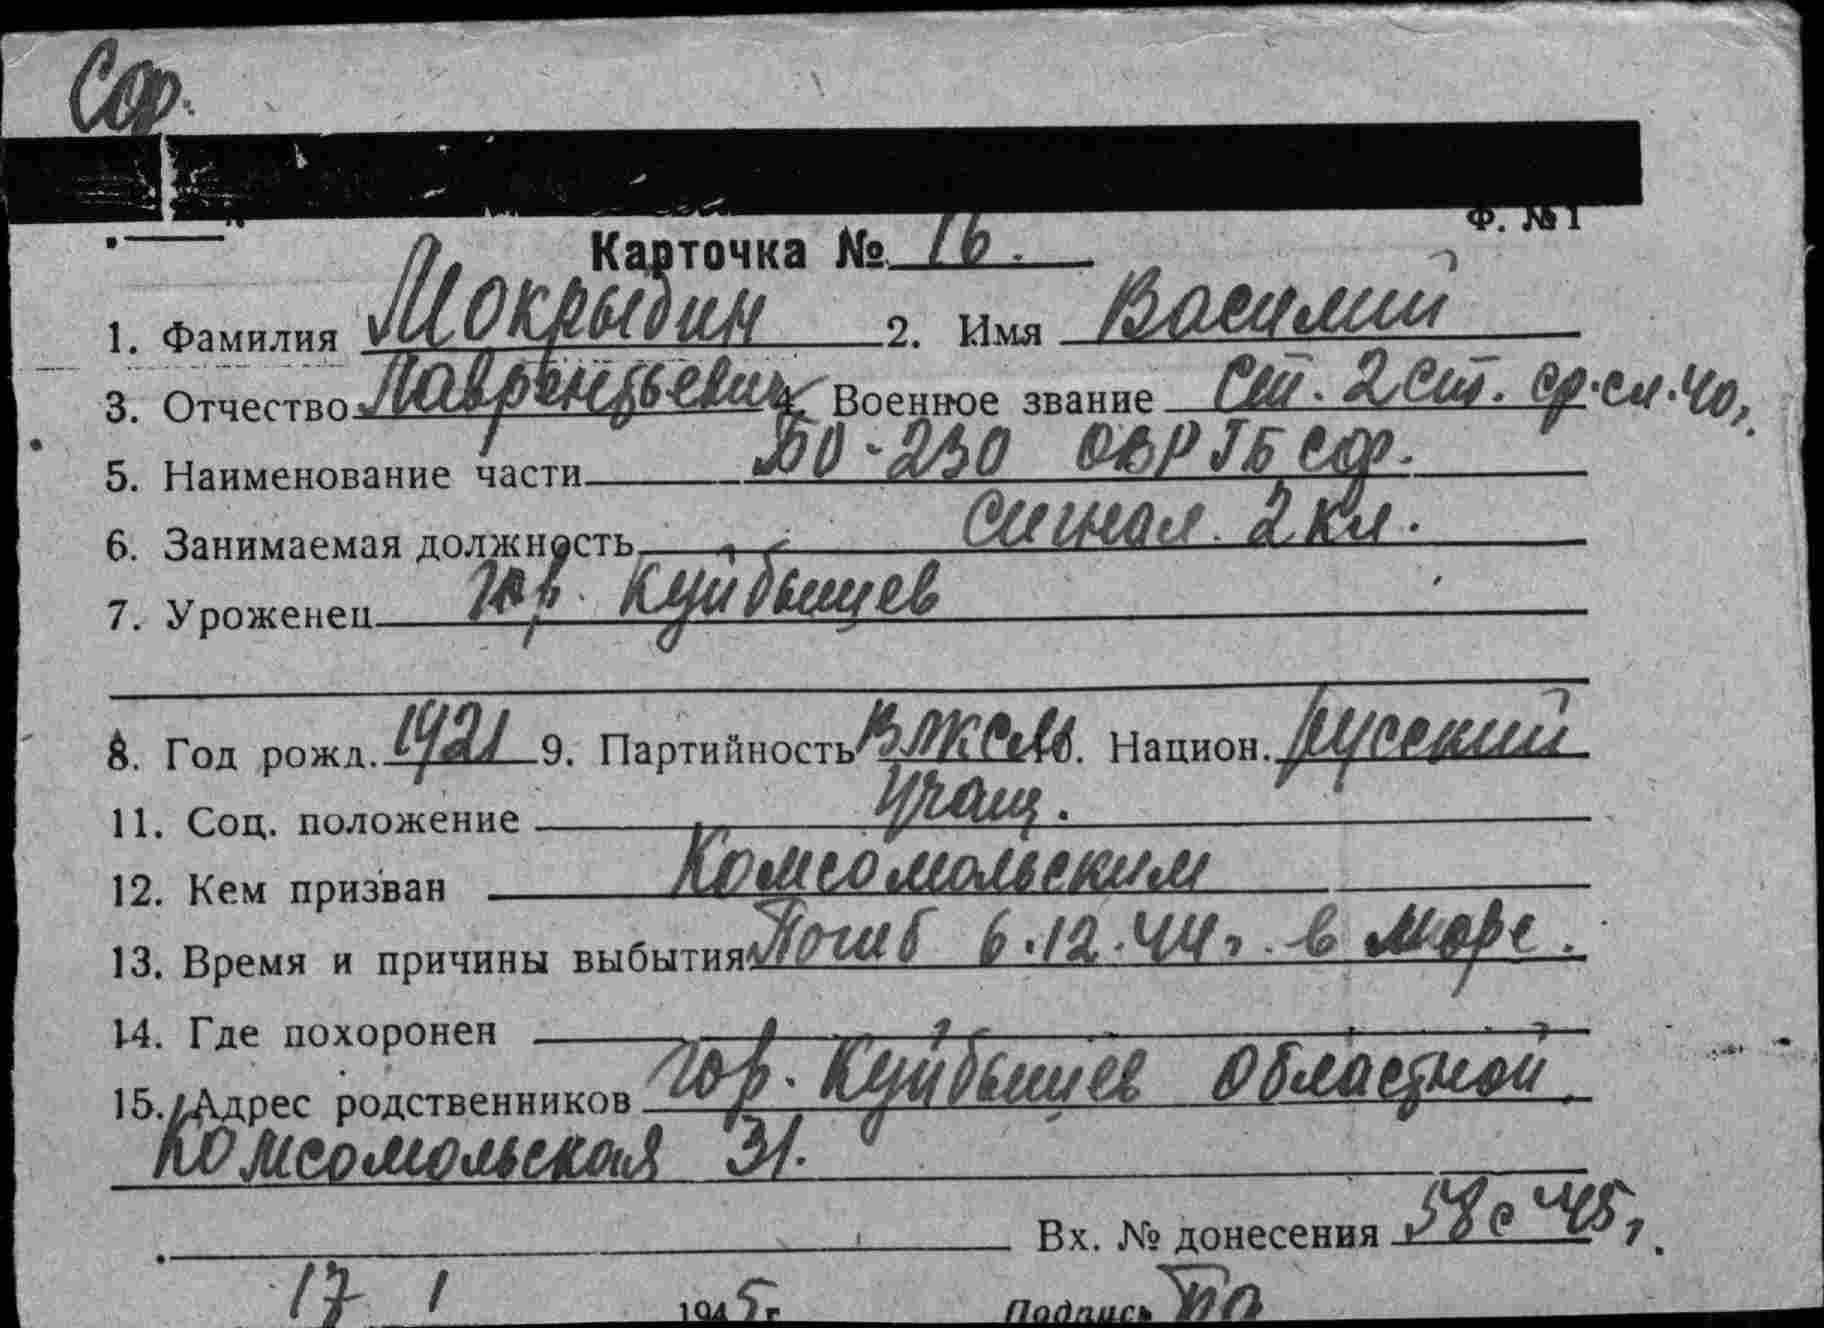 Сф.
Ф. № 1
Карточка № 16.
1. Фамилия Мокрыдин 2. Имя Василий
3. Отчество Лаврентьевич 4. Военное звание Ст. 2 ст. ср. сл. 40 г.
5. Наименование части БО-230 ОВР ГБ Сф.
6. Занимаемая должность сигнал. 2 кл.
7. Уроженец гор. Куйбышев
8. Год рожд. 1921 9. Партийность ВЛКСМ 10. Национ. русский
11. Соц. положение Учащ.
12. Кем призван Комсомольским
13. Время и причины выбытия Погиб 6.12.44 г. в море.
14. Где похоронен
15. Адрес родственников гор. Куйбышев областной,
Комсомольская 31.
Вх. № донесения 58с 45 г.
17 1 1945 г. Подпись